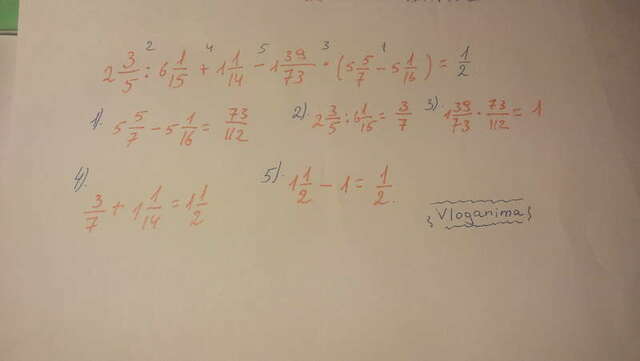 2 3/5 : 6 1/15 + 1 1/14 - 1 39/73 · (5 5/7 - 5 1/16) = 1/2
1). 5 5/7 - 5 1/16 = 73/112 2). 2 3/5 : 6 1/15 = 3/7 3). 1 39/73 · 73/112 = 1
4). 3/7 + 1 1/14 = 1 1/2 5). 1 1/2 - 1 = 1/2.
Vloganima